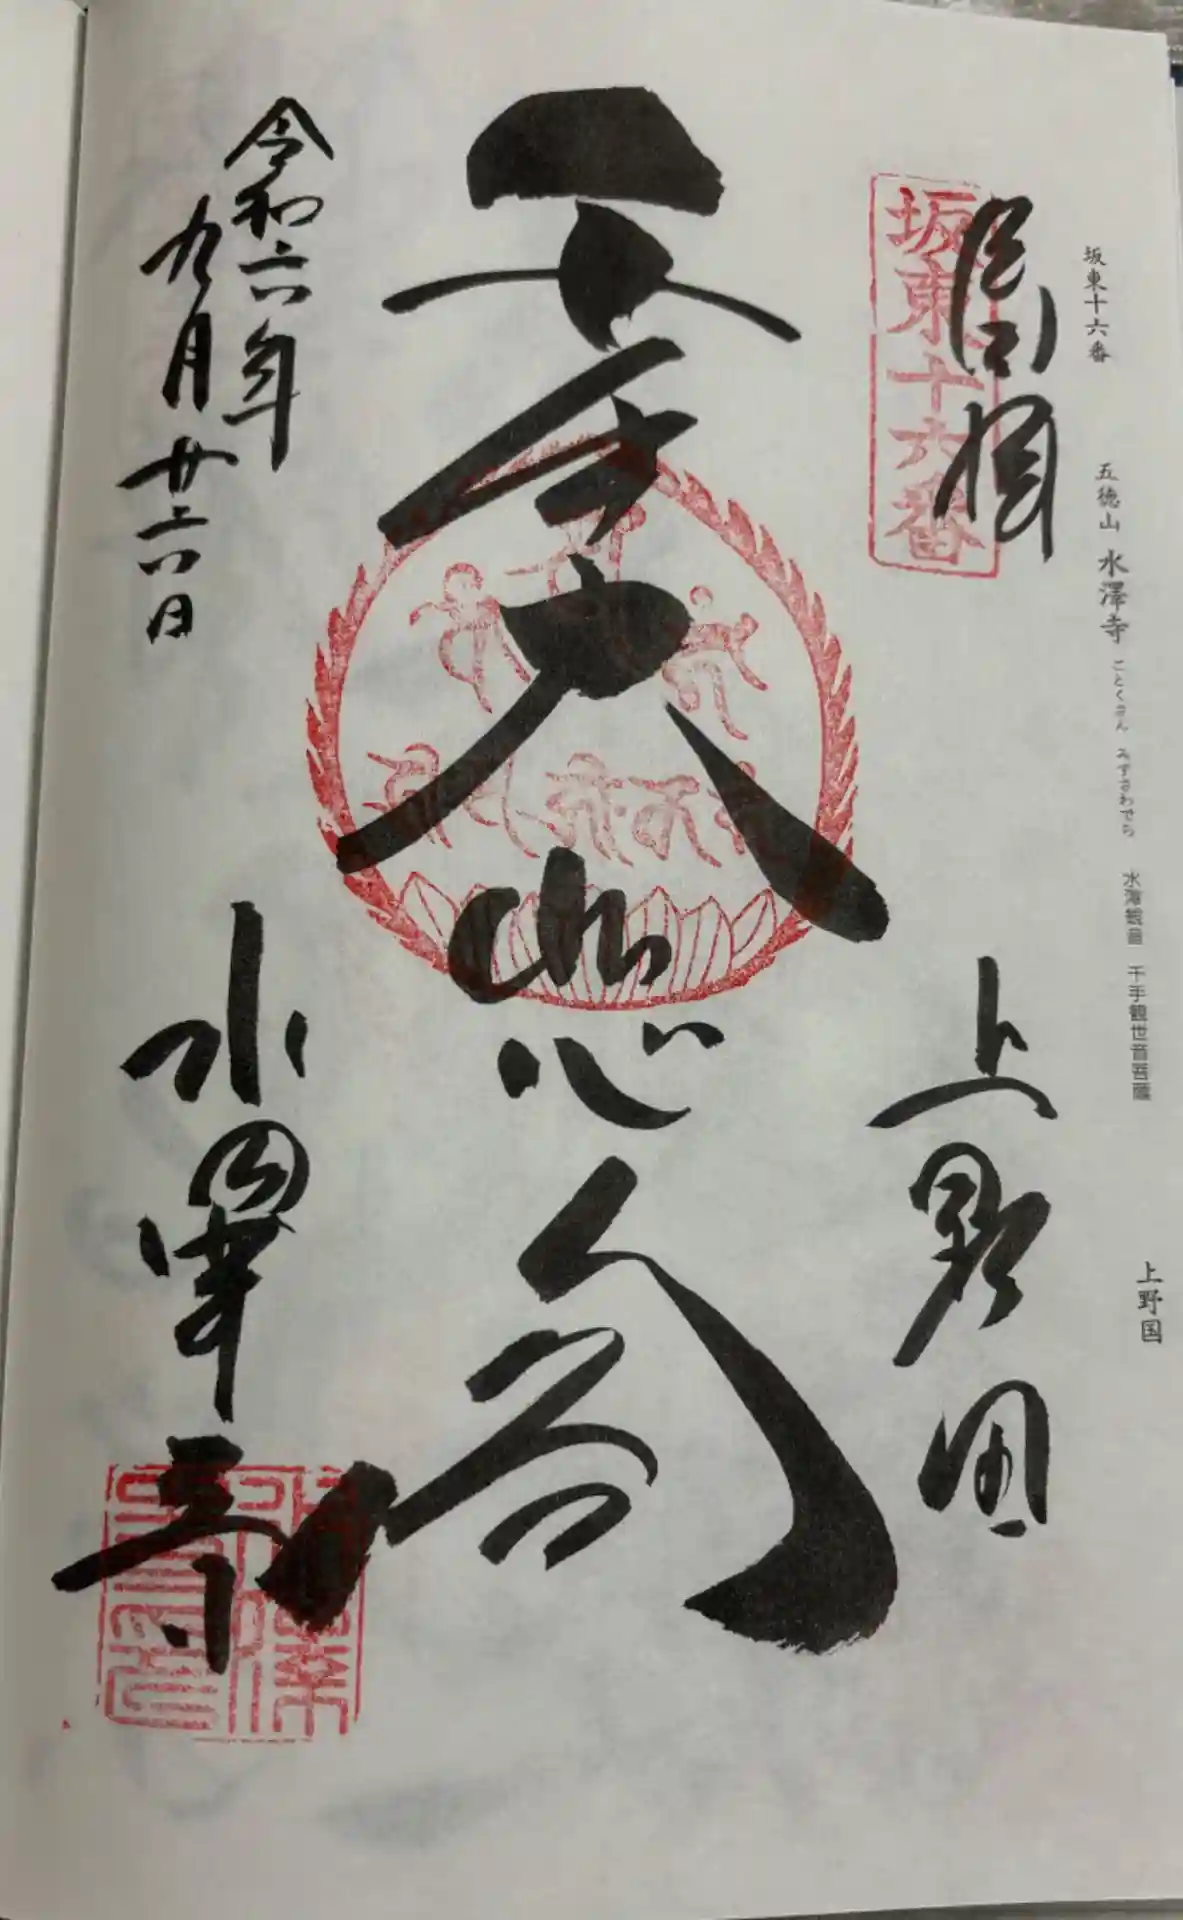 坂東十六番
五徳山 水澤寺 ごとくさん みずさわでら 水澤観音 千手観世音菩薩
上野国
坂東十六番
上野国
千手大悲閣
令和六年
九月廿六日
水澤寺